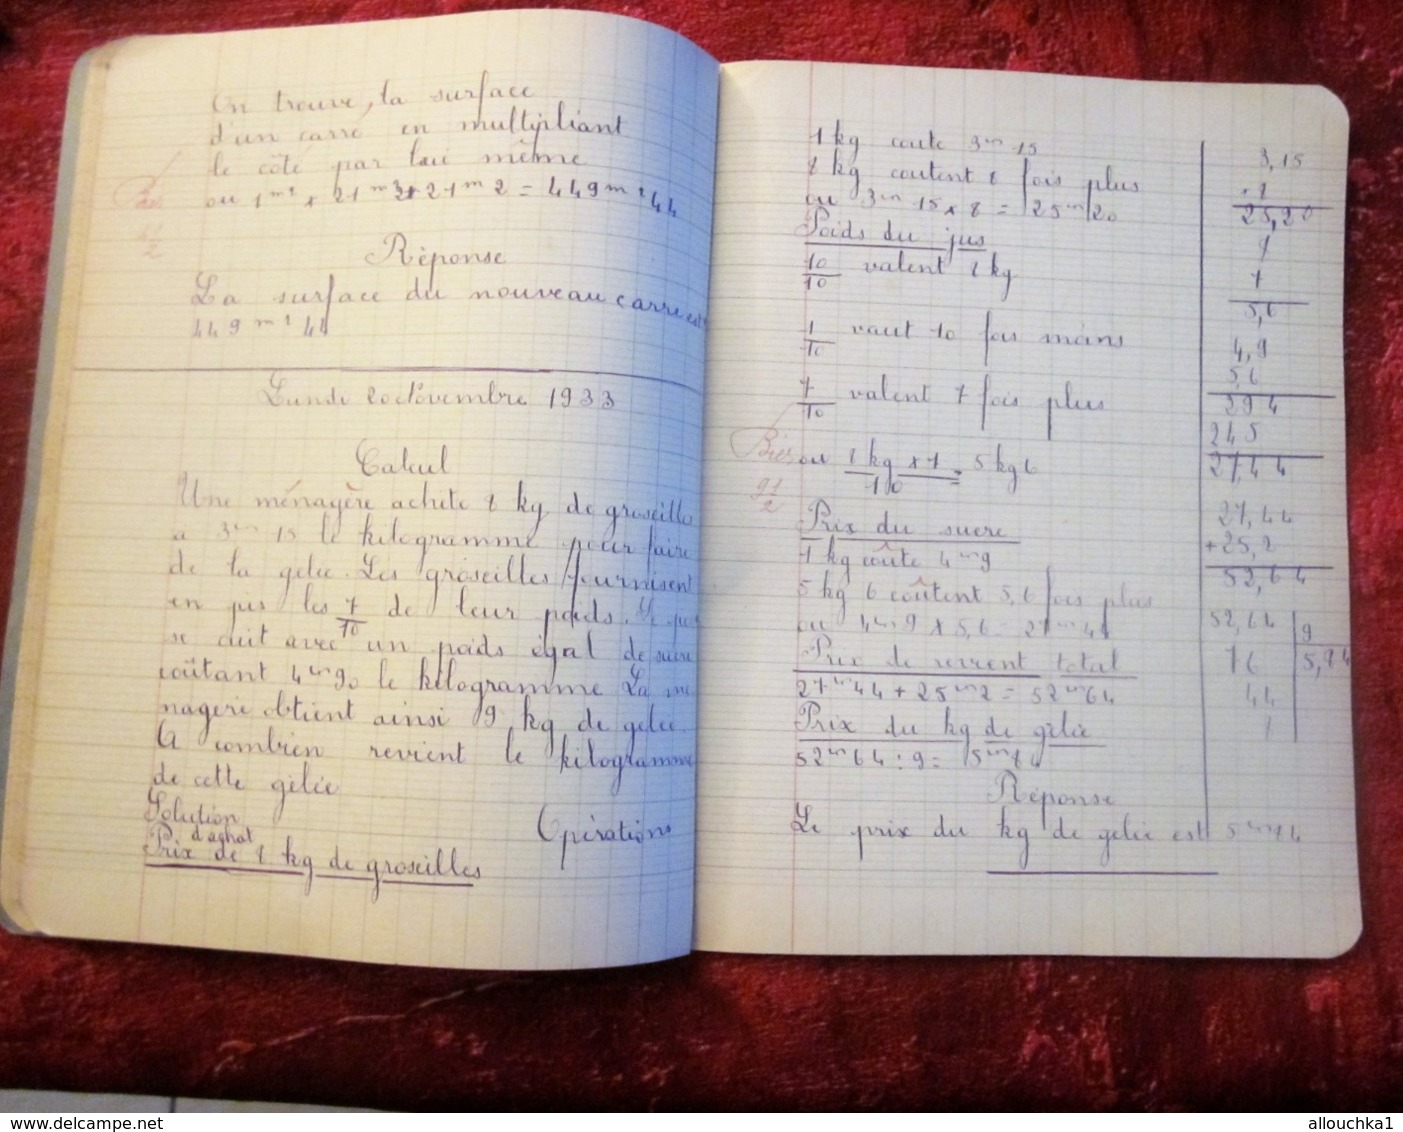 On trouve, la surface
d'un carré en multipliant
le côté par lui même
= 449 m² 44
Réponse
La surface du nouveau carré est
449 m² 44
Lundi 20 Novembre 1933
Calcul
Une ménagère achete 8 kg de groseilles
a 3 fr 15 le kilogramme pour faire
de la gelée. Les groseilles fournisent
en jus les 7/10 de leur poids. Le jus
se cuit avec un poids égal de sucre
coûtant 4 fr 90 le kilogramme La me
nagère obtient ainsi 9 kg de gelée.
A combien revient le kilogramme
de cette gelée
Solution
Opérations
d'achat
Prix de 8 kg de groseilles
1 kg coute 3 fr 15
8 kg coutent 8 fois plus
ou 3 fr 15 x 8 = 25 fr 20
Poids du jus
10/10 valent 8 kg
1/10 vaut 10 fois moins
7/10 valent 7 fois plus
Bien
ou 8 kg x 7 / 10 = 5 kg 6
9 1/2
Prix du sucre
1 kg coûte 4 fr 9
5 kg 6 coûtent 5,6 fois plus
ou 4 fr 9 x 5,6 = 27 fr 44
Prix de revient total
27 fr 44 + 25 fr 2 = 52 fr 64
Prix du kg de gelée
52 fr 64 : 9 = 5 fr 84
Réponse
Le prix du kg de gelée est 5 fr 84
3,15
8
25,20
8
7
5,6
4,9
5,6
294
245
27,44
27,44
+ 25,2
52,64
52,64 9
76 5,84
44
8
www.delcampe.net
allouchka1